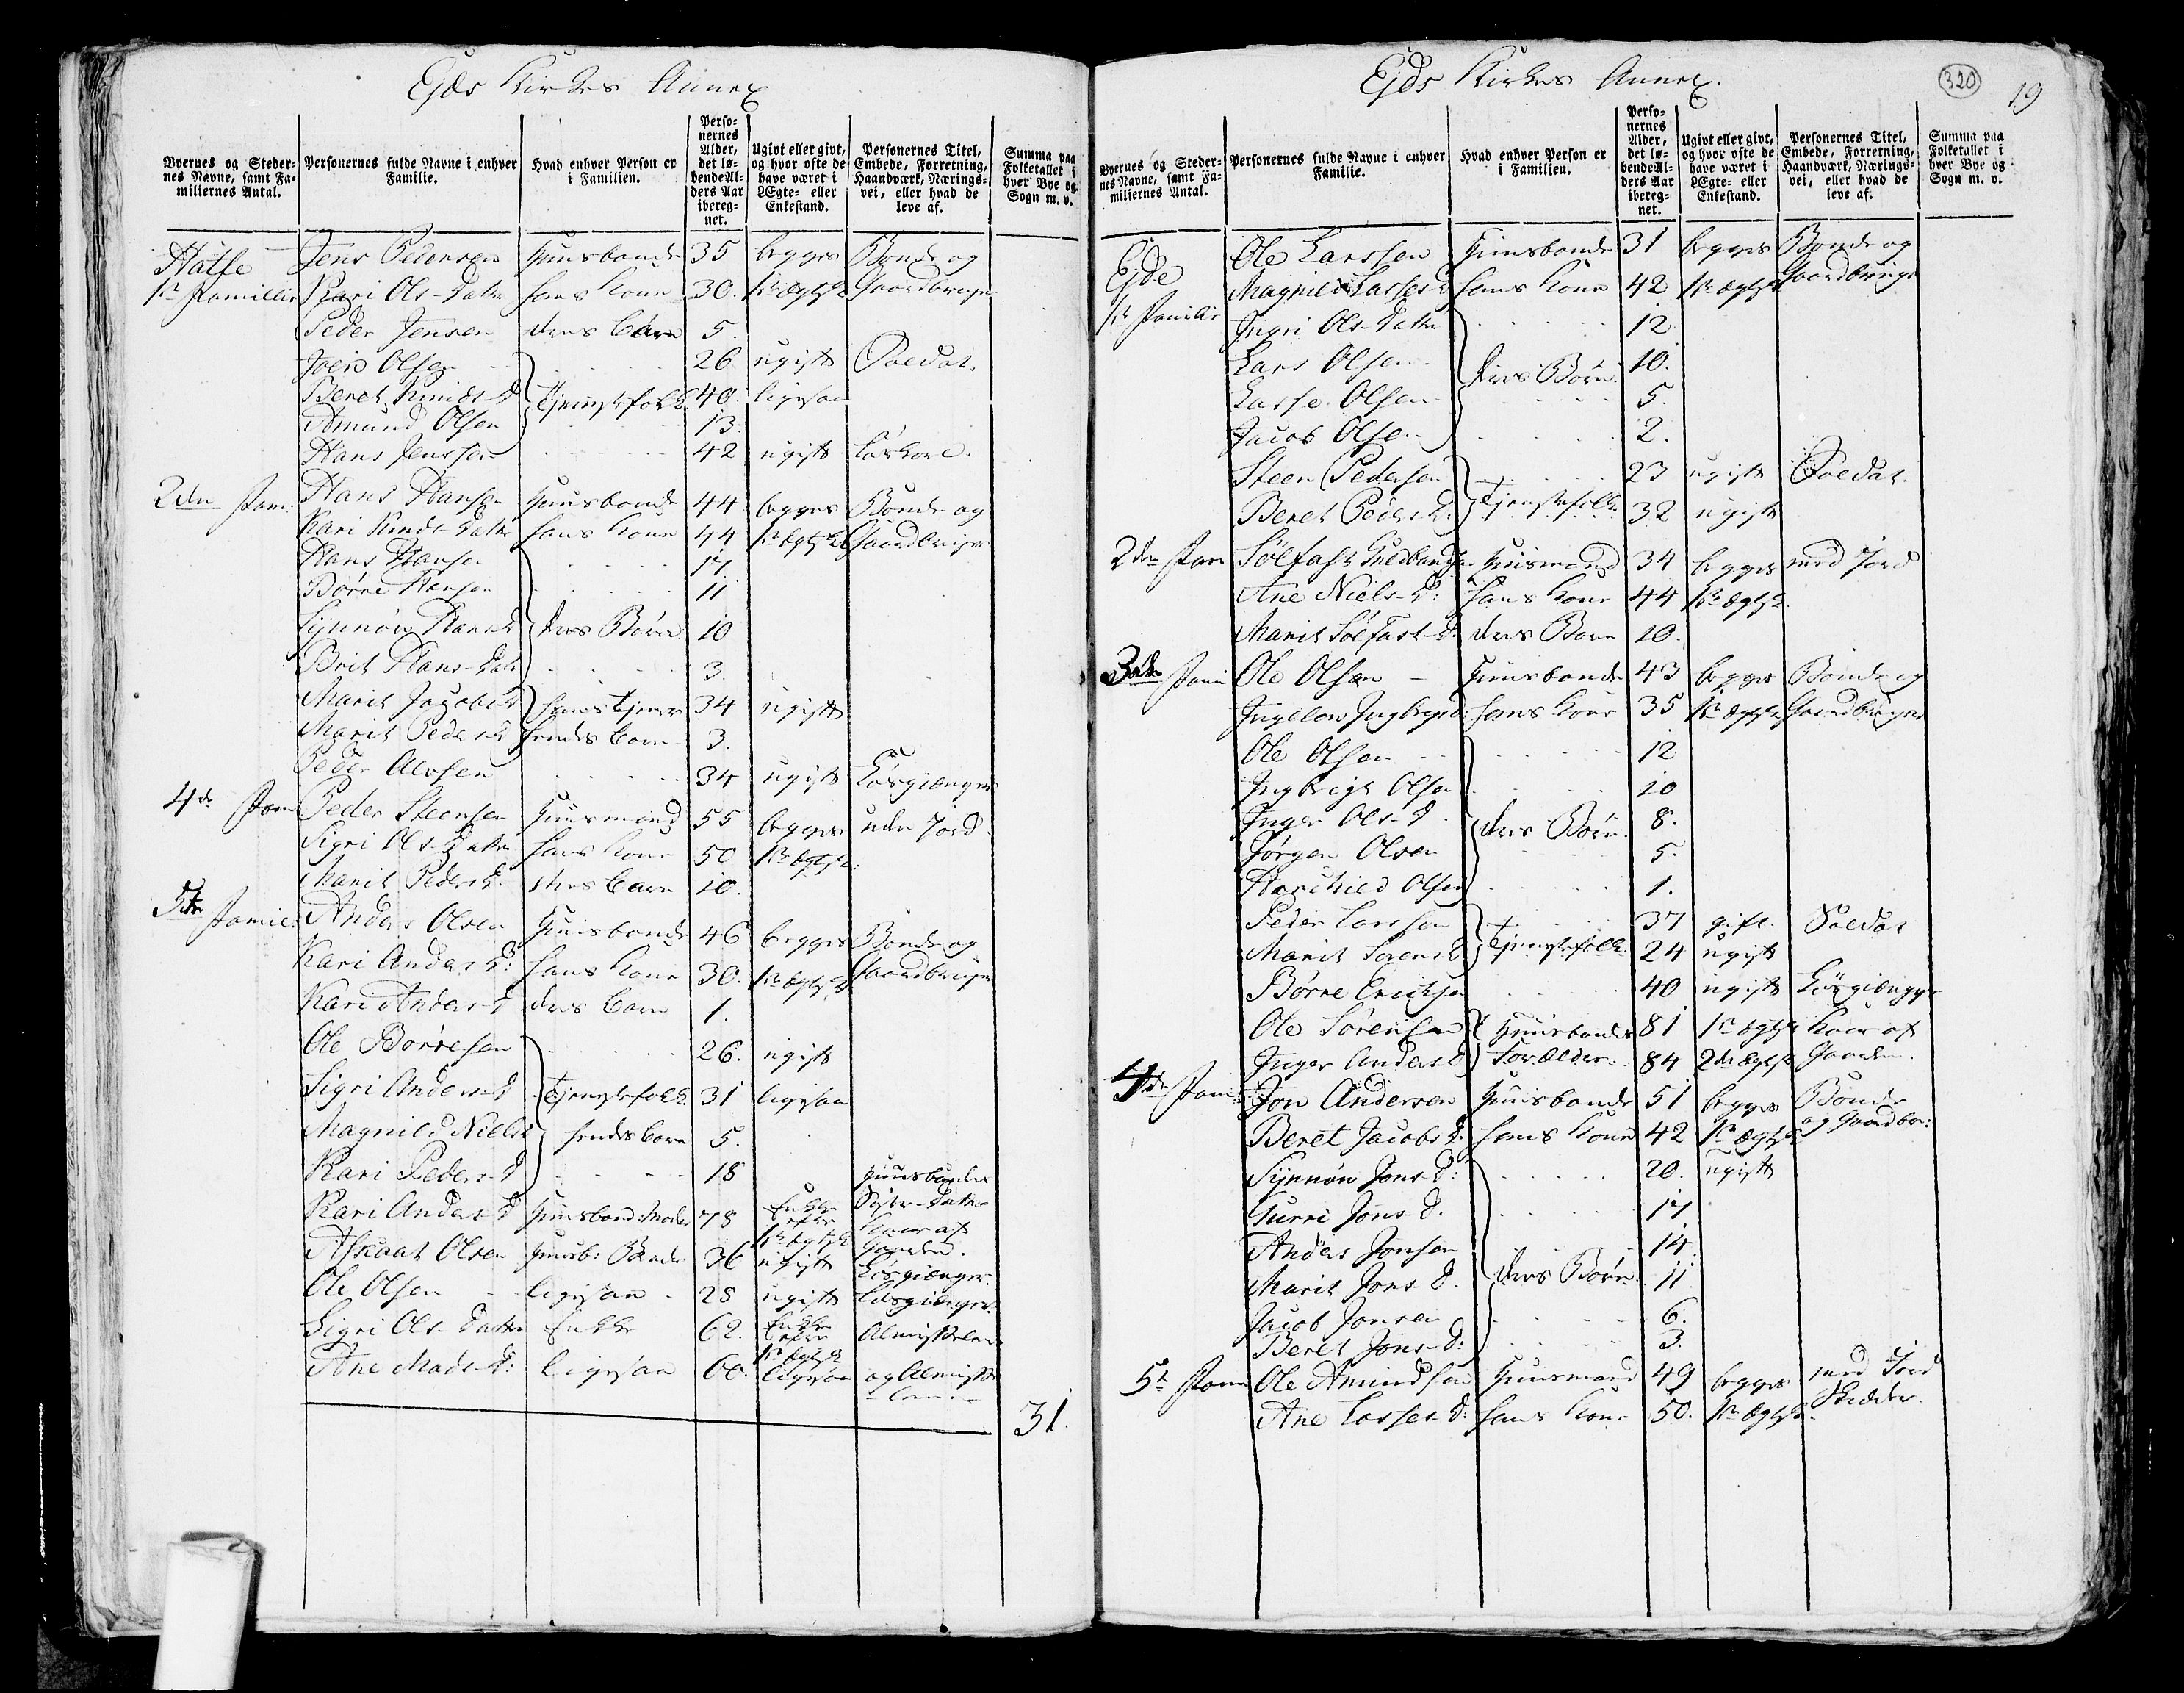 Ejds Kirkes Annex
Byernes og Steder-
nes Navne, samt Fa-
miliernes Antal.
Personernes fulde Navne i enhver
Familie.
Hvad enhver Person er
i Familien.
Perso-
nernes
Alder,
det lø-
bende Al-
ders Aar
ibereg-
net.
Ugivt eller givt,
og hvor ofte de
have været i
Ægte- eller
Enkestand.
Personernes Titel,
Embede, Forretning,
Haandværk, Nærings-
vei, eller hvad de
leve af.
Summa paa
Folketallet i
hver Bye og
Sogn m. v.
Jens Pedersen Huusbonde 35 begges Bonde og
1te Familie Kari Ols-Datter hans Kone 30. 1te Ægtsk Gaardbruger
Peder Jensen deres Barn 5.
Olsen 26 ugift Soldat.
Beret Knuds-D Tjenistefolk 40. ligesaa
Amund Olsen 13.
Hans Jenssen 42 ugift
2den Fam: Hans Hansen Huusbonde 44 begges Bonde og
Kari Knuds Datter hans Kone 44 1te Ægtsk Gaardbruger
Hans Hansen 17
Børre Hansen 11
Synnøv Hans-D deres Børn 10
Brit Hans-Datt 3.
Marit Jacobs-D hans tjener 34 ugift
Marit Peders-D hendes Barn 3.
Peder 34 ugift Løsgiænger
4de Fam Peder Steensen Huusmand 55 begges uden Jord.
Sigri Ols-Datter hans Kone 50 1te Ægtsk:
Marit Peders-D. deres Barn 10.
5te Famil: Anders Olsen Huusbonde 46 begges Bonde og
Kari Anders D: hans Kone 30. 1te Ægtsk Gaardbruger
Kari Anders-D deres Barn 1.
Ole Børresen 26. ugift
Sigri Anders-D Tjenistefolk 31 ligesaa
Magnild Niels D hendes Barn 5.
Kari Peders-D 18 Huusbondens
Søster-Datter
Kari Anders-D Huusbond: Moder 78 Enke
efter
1te Ægtsk Kaar af
Gaarden.
Olsen Huusb: 36 ugift Løsgiænger.
Ole Olsen ligesaa 28 ugift Løsgiænger.
Sigri Ols-Datter Enke 62. Enke
efter
1te Ægtsk Almisselem
Ane Mads-D: ligesaa 60. ligesaa og Almisse-
lem.
31.
Ejds Kirkes Annex.
320
19
Byernes og Steder-
nes Navne, samt Fa-
miliernes Antal.
Personernes fulde Navne i enhver
Familie.
Hvad enhver Person er
i Familien.
Perso-
nernes
Alder,
det lø-
bende Al-
ders Aar
ibereg-
net.
Ugivt eller givt,
og hvor ofte de
have været i
Ægte- eller
Enkestand.
Personernes Titel,
Embede, Forretning,
Haandværk, Nærings-
vei, eller hvad de
leve af.
Summa paa
Folketallet i
hver Bye og
Sogn m. v.
Ejde Ole Larssen Huusbonde 31 begges Bonde og
1te Familie Magnild Lasses-D hans Kone 42 1te Ægtsk Gaardbruger
Ingri Ols-Datter 12
Lars Olsen 10.
Lasse Olsen deres Børn 5.
Jacob Olsen 2.
Steen Pedersen 23 ugift Soldat.
Beret Peders-D: Tjenistefolk 32 ugift
2den Fam Sølfast Guldbrandsen Huusmand 34 begges med Jord
Ane Niels-D: hans Kone 44 1te Ægtsk.
Marit Sølfast-D: deres Barn 10.
3die Fami Ole Olsen Huusbonde 43 begges Bonde og
Ingebrigs D: hans Kone 35 1te Ægtsk Gaardbruger
Ole Olsen 12
Ingbrigt Olsen 10
Inger Ols-D deres Børn. 8.
Jørgen Olsen 5.
Olsen 1.
Peder Larssen 37 gift. Soldat
Marit Sørens D Tjenistefolk 24 ugift
Børre Ericksen 40 ugift Løsgiænger
Ole Sørensen Huusbondens 81 1te Ægtsk Kaar af
Inger Anders D Forælder. 84 2de Ægtsk Gaarden.
4de Fam: Jon Andersen Huusbonde 51 begges Bonde
Beret Jacobs D: hans Kone 42 1te Ægtsk og Gaardbr:
Synnøv Jons-D: 20. ugift
Gurri Jons-D. 17
Anders Jonsen 14.
Marit Jons-D. deres Børn. 11
Jacob Jonsen 6.
Beret Jons-D: 3.
5te Fam Ole Amundsen Huusmand 49 begges med Jord
Ane Lasses-D: hans Kone 50. 1te Ægtsk.